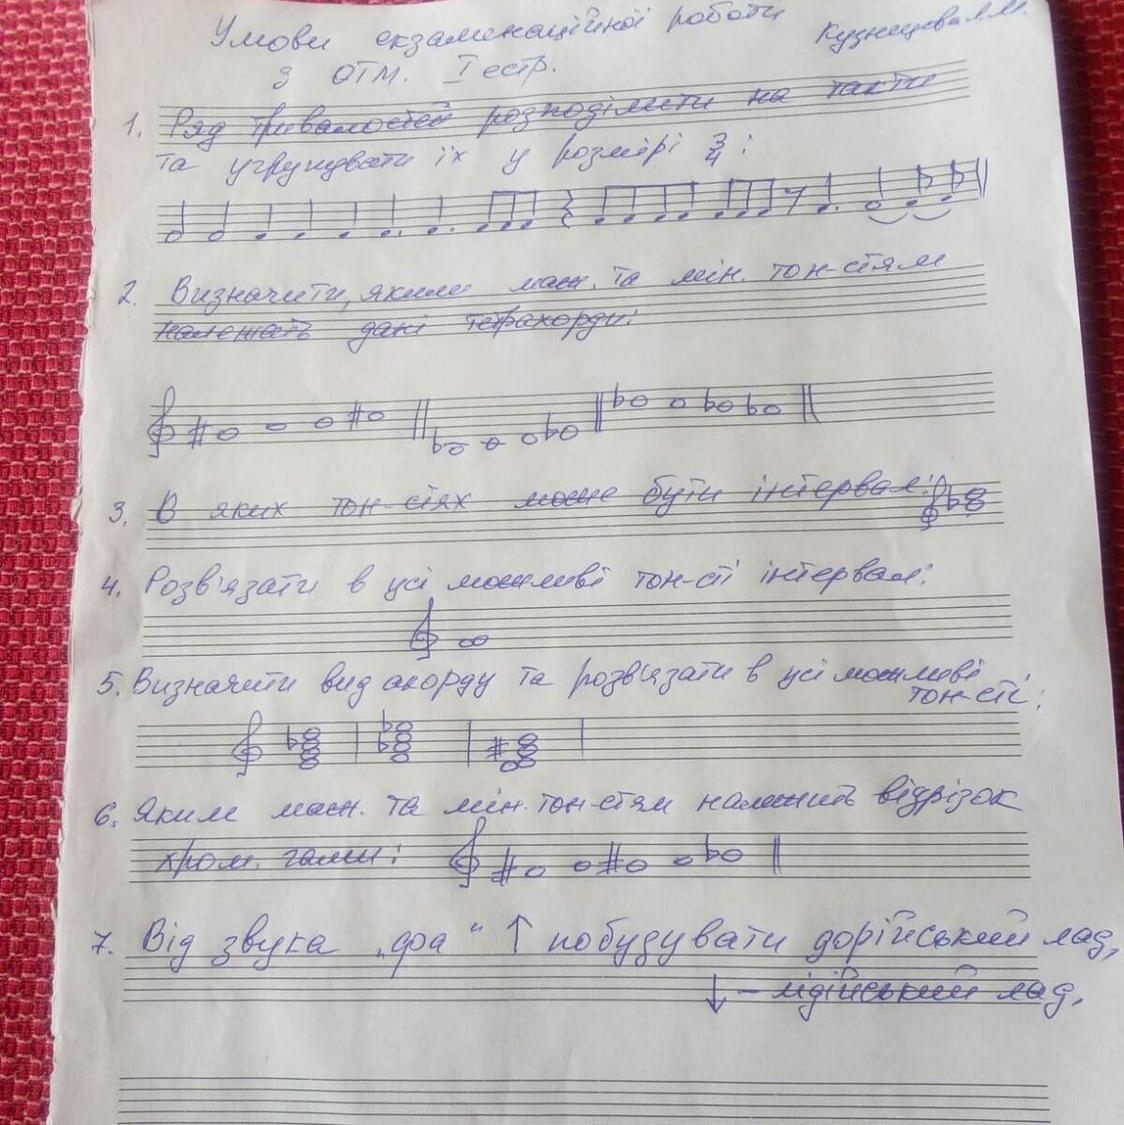 Умови екзаменаційної роботи
Кузнецова
з ОТМ. I сестр.
1. Ряд тривалостей розподілити на такти
та угрупувати їх у розмірі 3/4:
2. Визначити, яким маж. та мін. тон-стям
належать дані тетрахорди:
3. В яких тон-стях може бути інтервал:
4. Розв'язати в усі можливі тон-сті інтервал:
5. Визначити вид акорду та розв'язати в усі можливі
тон-сті:
6. Яким маж. та мін. тон-стям належить відрізок
хром. гами:
7. Від звука „фа“ ↑ побудувати дорійський лад,
↓ – лідійський лад,